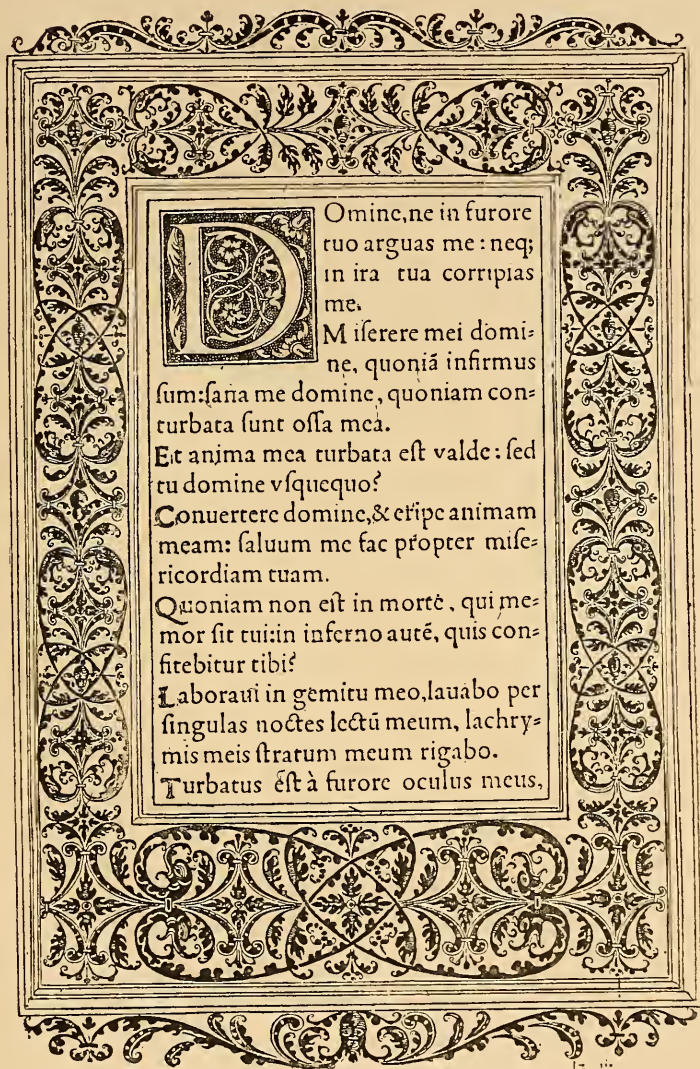 DOmine,ne in furore
tuo arguas me : neq;
in ira tua corripias
me.
M iſerere mei domi=
ne, quoniã infirmus
ſum:ſana me domine, quoniam con=
turbata ſunt oſſa mea.
Et anima mea turbata eſt valde : ſed
tu domine vſquequo?
Conuertere domine,& eripe animam
meam: ſaluum me fac propter miſe=
ricordiam tuam.
Quoniam non eſt in morte , qui me=
mor ſit tui:in inferno autẽ, quis con=
fitebitur tibi?
Laboraui in gemitu meo,lauabo per
ſingulas noctes lectũ meum, lachry=
mis meis ſtratum meum rigabo.
Turbatus eſt à furore oculus meus,